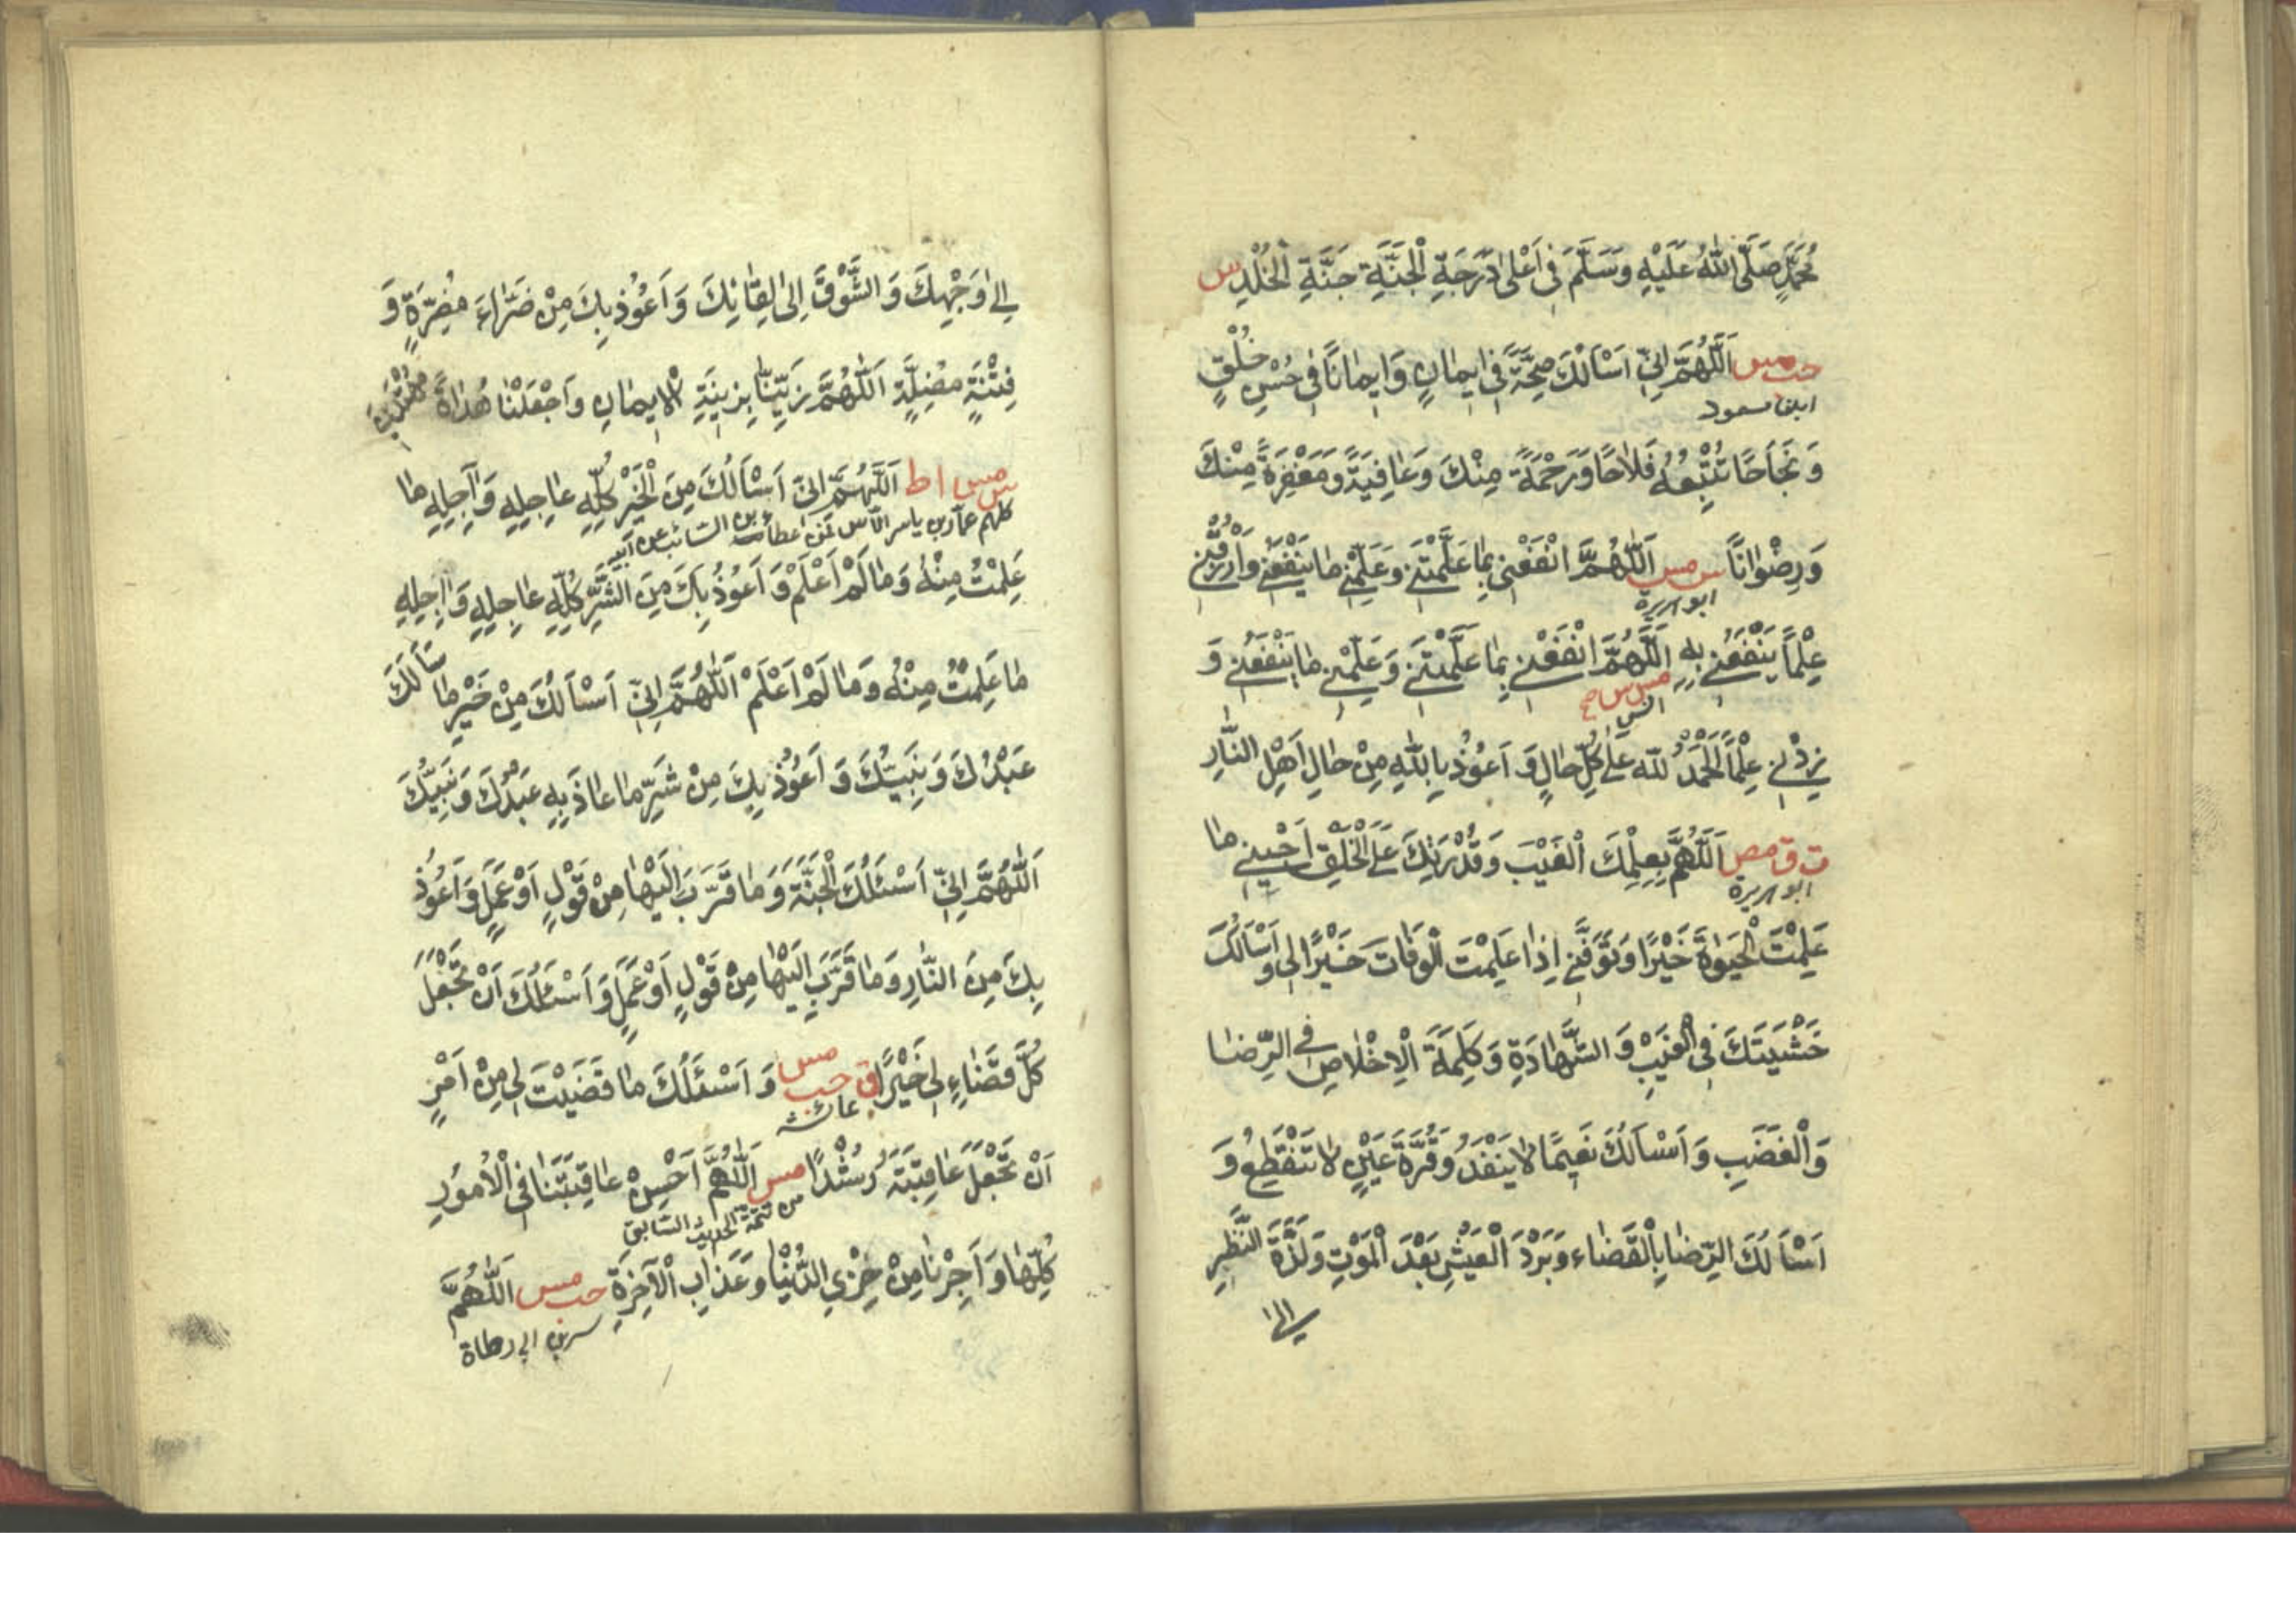 مُحَمَّدٍ صَلَّى اللّٰهُ عَلَيْهِ وَسَلَّمَ فِي اَعْلٰى دَرَجَةِ الْجَنَّةِ جَنَّةِ الْخُلْدِ س
حب مس اَللّٰهُمَّ اِنِّي اَسْاَلُكَ صِحَّةً فِي اِيمَانٍ وَاِيمَانًا فِي حُسْنِ خُلُقٍ
ابن مسعود
وَنَجَاحًا تُتْبِعُهُ فَلَاحًا وَرَحْمَةً مِنْكَ وَعَافِيَةً وَمَغْفِرَةً مِنْكَ
وَرِضْوَانًا س مس اَللّٰهُمَّ انْفَعْنِي بِمَا عَلَّمْتَنِي وَعَلِّمْنِي مَا يَنْفَعُنِي وَارْزُقْنِي
ابو هريرة
عِلْمًا يَنْفَعُنِي بِهِ اَللّٰهُمَّ انْفَعْنِي بِمَا عَلَّمْتَنِي وَعَلِّمْنِي مَا يَنْفَعُنِي وَ
مس س
انس
زِدْنِي عِلْمًا اَلْحَمْدُ لِلّٰهِ عَلٰى كُلِّ حَالٍ وَاَعُوْذُ بِاللّٰهِ مِنْ حَالِ اَهْلِ النَّارِ
ت ق مص اَللّٰهُمَّ بِعِلْمِكَ الْغَيْبَ وَقُدْرَتِكَ عَلَى الْخَلْقِ اَحْيِنِي مَا
ابو هريرة
عَلِمْتَ الْحَيٰوةَ خَيْرًا وَتَوَفَّنِي اِذَا عَلِمْتَ الْوَفَاتَ خَيْرًا لِي وَاَسْاَلُكَ
خَشْيَتَكَ فِي الْغَيْبِ وَالشَّهَادَةِ وَكَلِمَةَ الْاِخْلَاصِ فِي الرِّضَا
وَالْغَضَبِ وَاَسْاَلُكَ نَعِيمًا لَا يَنْفَدُ وَقُرَّةَ عَيْنٍ لَا تَنْقَطِعُ وَ
اَسْاَلُكَ الرِّضَا بِالْقَضَاءِ وَبَرْدَ الْعَيْشِ بَعْدَ الْمَوْتِ وَلَذَّةَ النَّظَرِ
الى
اِلٰى وَجْهِكَ وَالشَّوْقَ اِلٰى لِقَائِكَ وَاَعُوْذُ بِكَ مِنْ ضَرَّاءَ مُضِرَّةٍ وَ
فِتْنَةٍ مُضِلَّةٍ اَللّٰهُمَّ زَيِّنَّا بِزِينَةِ الْاِيمَانِ وَاجْعَلْنَا هُدَاةً مُهْتَدِينَ
س مس ا ط اَللّٰهُمَّ اِنِّي اَسْاَلُكَ مِنَ الْخَيْرِ كُلِّهِ عَاجِلِهِ وَآجِلِهِ مَا
كلهم عمار بن ياسر عطاء بن السائب عن ابيه
عَلِمْتُ مِنْهُ وَمَا لَمْ اَعْلَمْ وَاَعُوْذُ بِكَ مِنَ الشَّرِّ كُلِّهِ عَاجِلِهِ وَاٰجِلِهِ
مَا عَلِمْتُ مِنْهُ وَمَا لَمْ اَعْلَمْ اَللّٰهُمَّ اِنِّي اَسْاَلُكَ مِنْ خَيْرِ مَا سَاَلَكَ
عَبْدُكَ وَنَبِيُّكَ وَاَعُوْذُ بِكَ مِنْ شَرِّ مَا عَاذَ بِهِ عَبْدُكَ وَنَبِيُّكَ
اَللّٰهُمَّ اِنِّي اَسْئَلُكَ الْجَنَّةَ وَمَا قَرَّبَ اِلَيْهَا مِنْ قَوْلٍ اَوْ عَمَلٍ وَاَعُوْذُ
بِكَ مِنَ النَّارِ وَمَا قَرَّبَ اِلَيْهَا مِنْ قَوْلٍ اَوْ عَمَلٍ وَاَسْئَلُكَ اَنْ تَجْعَلَ
كُلَّ قَضَاءٍ لِي خَيْرًا ق حب مس وَاَسْئَلُكَ مَا قَضَيْتَ لِي مِنْ اَمْرٍ
عائشة
اَنْ تَجْعَلَ عَاقِبَتَهُ رُشْدًا مس اَللّٰهُمَّ اَحْسِنْ عَاقِبَتَنَا فِي الْاُمُوْرِ
من تتمة الحديث السابق
كُلِّهَا وَاَجِرْنَا مِنْ خِزْيِ الدُّنْيَا وَعَذَابِ الْاٰخِرَةِ حب مس اَللّٰهُمَّ
ارطاة